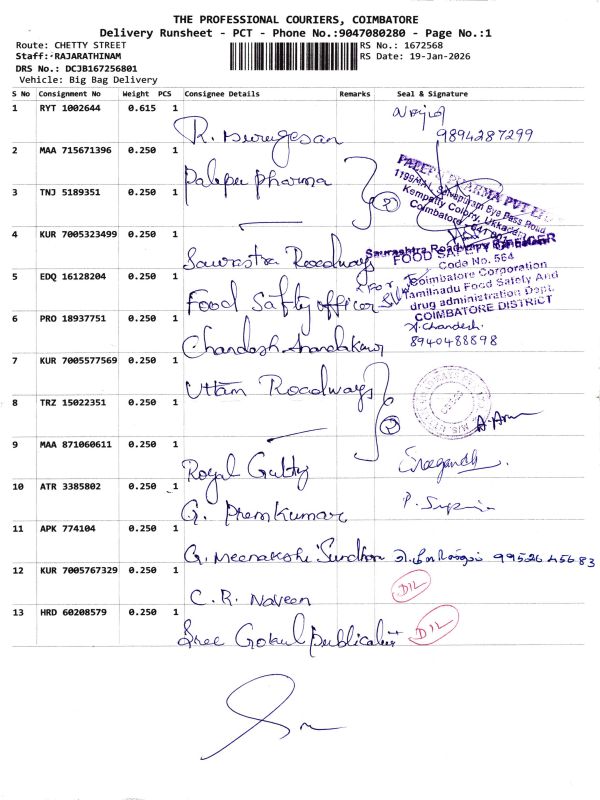 THE PROFESSIONAL COURIERS, COIMBATORE
Delivery Runsheet - PCT - Phone No.:9047080280 - Page No.:1
Route: CHETTY STREET
RS No.: 1672568
Staff: RAJARATHINAM
RS Date: 19-Jan-2026
DRS No.: DCJB167256801
Vehicle: Big Bag Delivery
S No Consignment No Weight PCS Consignee Details Remarks Seal & Signature
1 RYT 1002644 0.615 1 R. Murugesan 9894287299
2 MAA 715671396 0.250 1 Palepu pharma
PALEPU PHARMA PVT LTD
3 TNJ 5189351 0.250 1 ②
Kempatty Colony, Ukkadam
Coimbatore - 641 001
4 KUR 7005323499 0.250 1 Saurastra Roadways
Saurashtra Roadways
FOOD SAFETY OFFICER
Code No. 564
5 EDQ 16128204 0.250 1 Food Safty officer
Coimbatore Corporation
Tamilnadu Food Safety And
drug administration Dept.
COIMBATORE DISTRICT
6 PRO 18937751 0.250 1 Chandesh
A. Chandesh.
8940488898
7 KUR 7005577569 0.250 1 Uttam Roadways
8 TRZ 15022351 0.250 1 ②
9 MAA 871060611 0.250 1 Royal
10 ATR 3385802 0.250 1 G. Premkumar
11 APK 774104 0.250 1 G. Meenakshi 9952645683
12 KUR 7005767329 0.250 1 C.R. Naveen D12
13 HRD 60208579 0.250 1 Sree Gokul D12